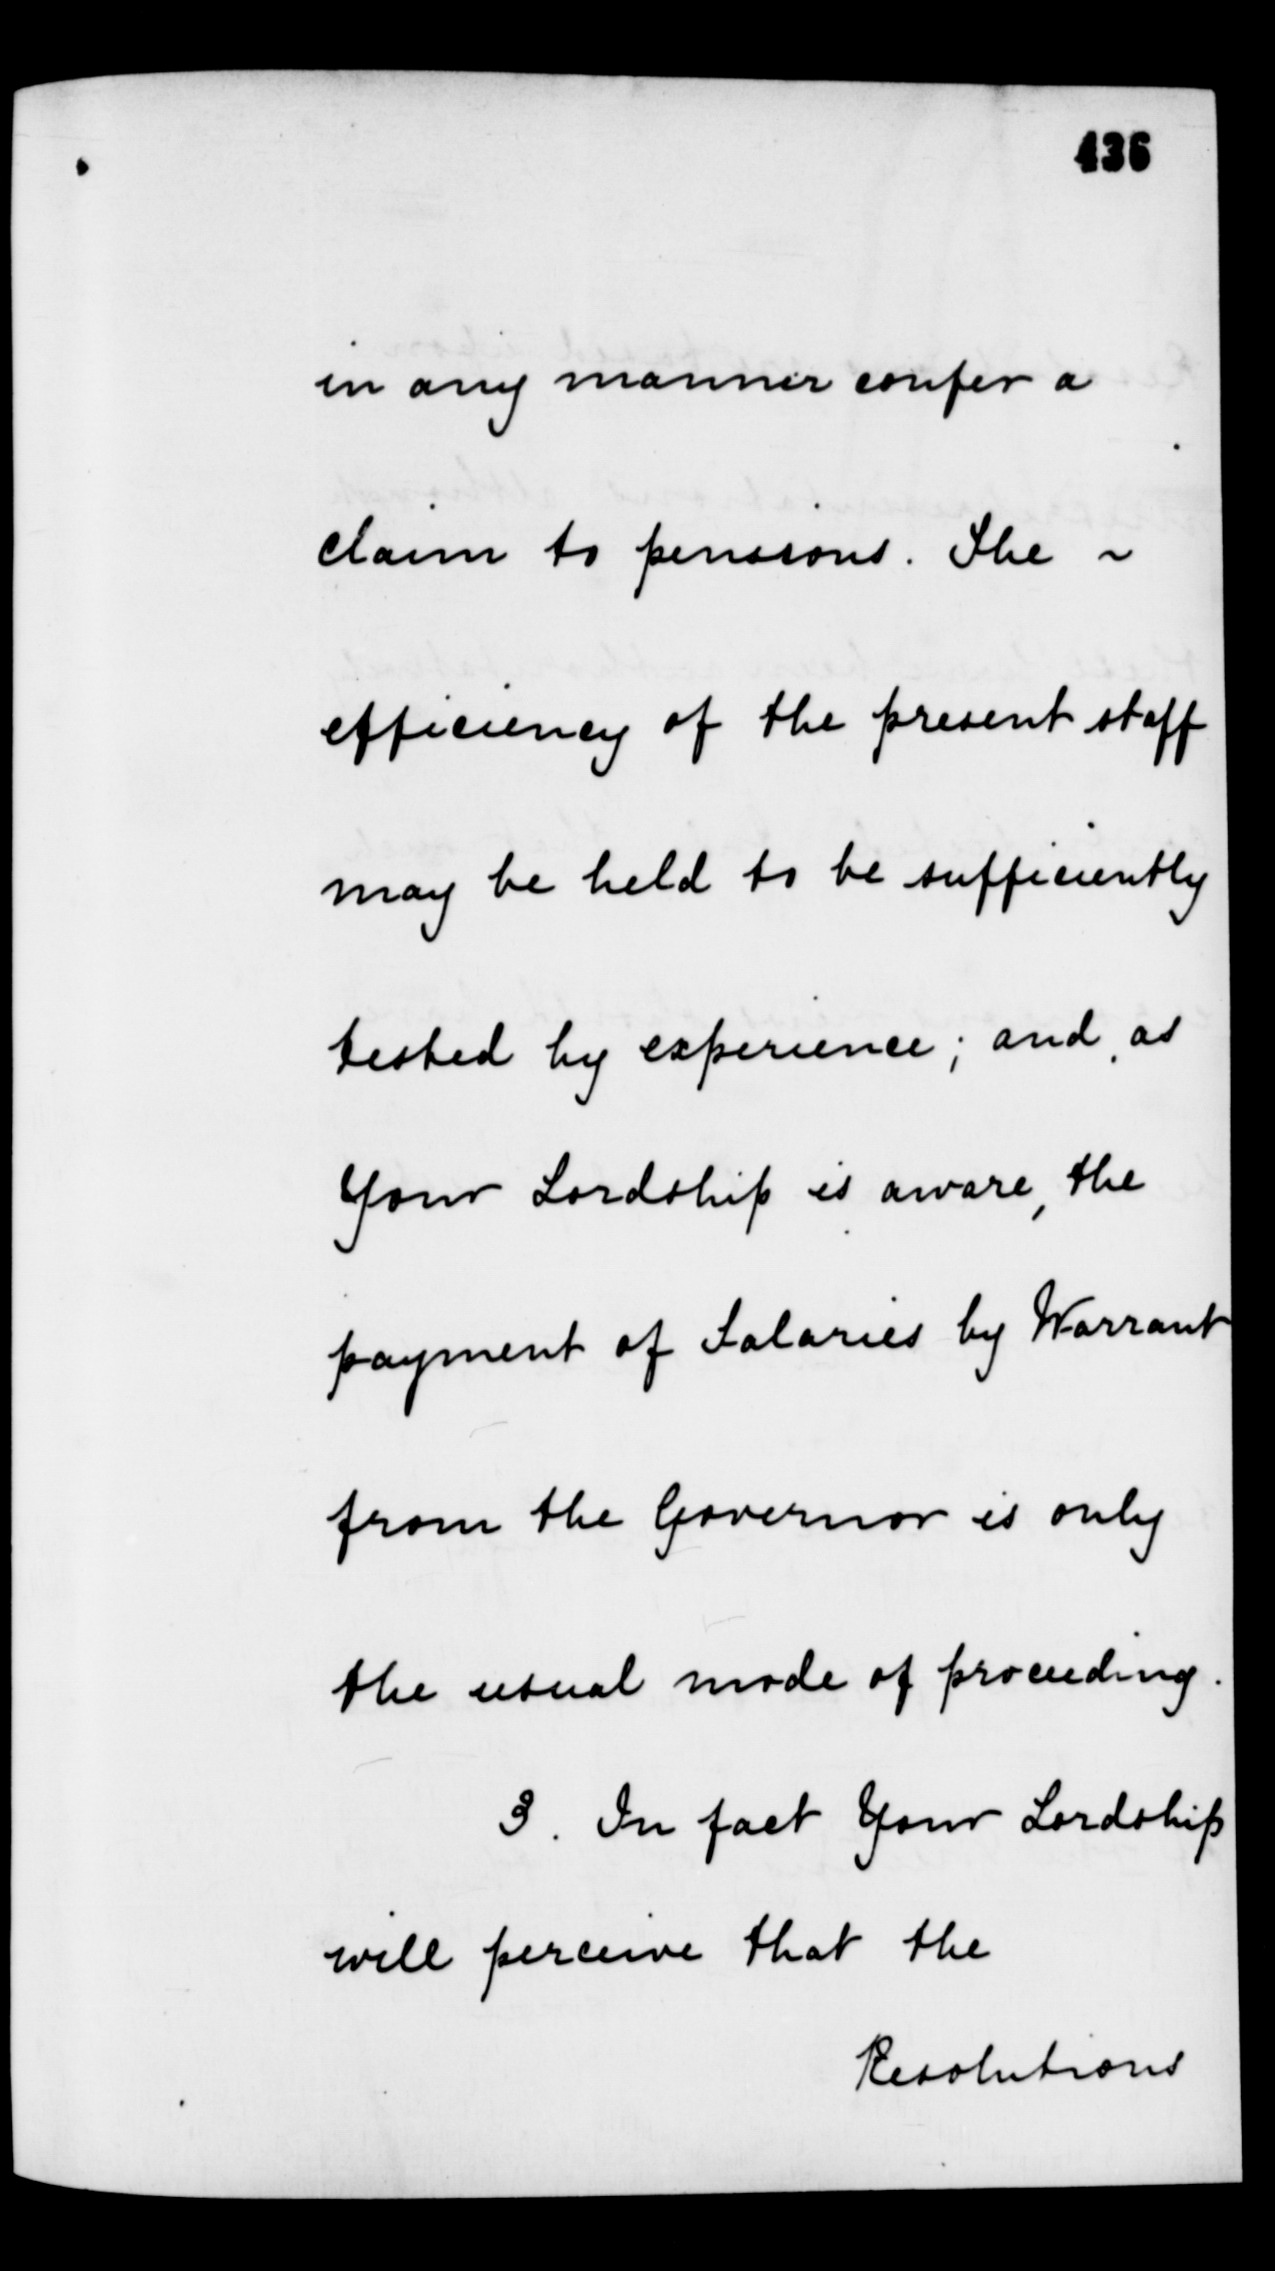 436
in any manner confer a
claim to pensions. The ~
efficiency of the present staff
may be held to be sufficiently
tested by experience; and, as
Your Lordship is aware, the
payment of Salaries by Warrant
from the Governor is only
the usual mode of proceeding.
3. In fact Your Lordship
will perceive that the
Resolutions